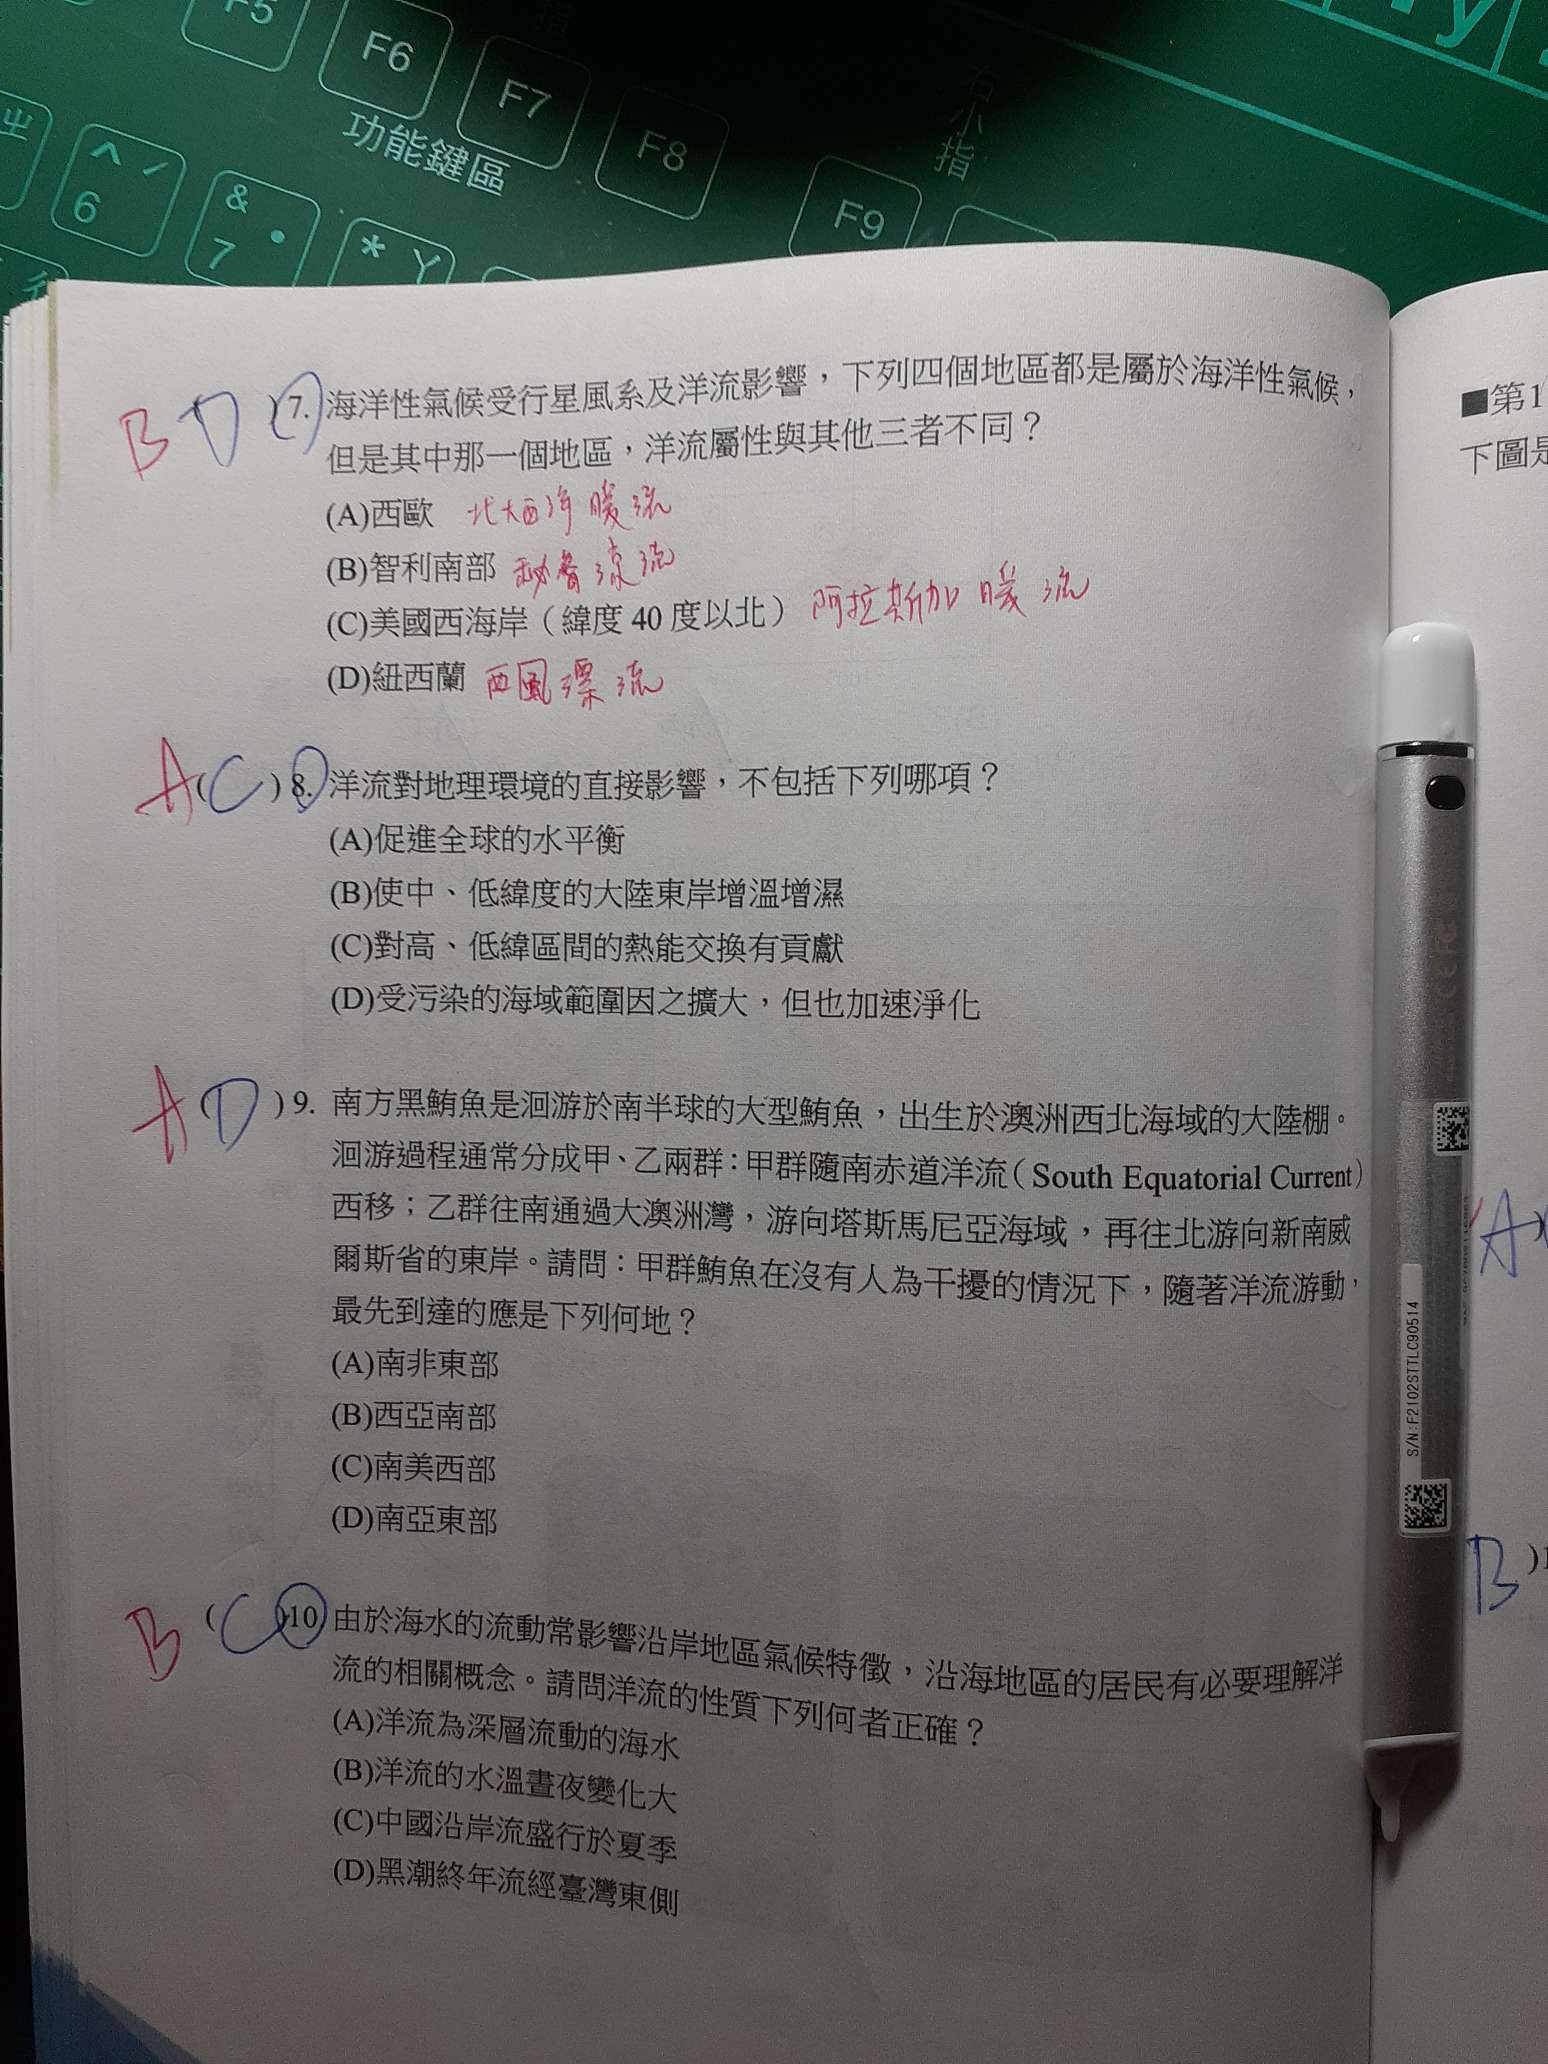 F5
F6
F7
F8
F9
功能鍵區
右小指
^
6
&
7
*
ㄓ
ㄚ
B D ( ) 7. 海洋性氣候受行星風系及洋流影響，下列四個地區都是屬於海洋性氣候，
但是其中那一個地區，洋流屬性與其他三者不同？
(A)西歐 北大西洋暖流
(B)智利南部 秘魯涼流
(C)美國西海岸（緯度 40 度以北） 阿拉斯加暖流
(D)紐西蘭 西風漂流
A ( C ) 8. 洋流對地理環境的直接影響，不包括下列哪項？
(A)促進全球的水平衡
(B)使中、低緯度的大陸東岸增溫增濕
(C)對高、低緯區間的熱能交換有貢獻
(D)受污染的海域範圍因之擴大，但也加速淨化
A ( D ) 9. 南方黑鮪魚是洄游於南半球的大型鮪魚，出生於澳洲西北海域的大陸棚。
洄游過程通常分成甲、乙兩群：甲群隨南赤道洋流（South Equatorial Current）
西移；乙群往南通過大澳洲灣，游向塔斯馬尼亞海域，再往北游向新南威
爾斯省的東岸。請問：甲群鮪魚在沒有人為干擾的情況下，隨著洋流游動，
最先到達的應是下列何地？
(A)南非東部
(B)西亞南部
(C)南美西部
(D)南亞東部
B ( C )10. 由於海水的流動常影響沿岸地區氣候特徵，沿海地區的居民有必要理解洋
流的相關概念。請問洋流的性質下列何者正確？
(A)洋流為深層流動的海水
(B)洋流的水溫晝夜變化大
(C)中國沿岸流盛行於夏季
(D)黑潮終年流經臺灣東側
■第1
下圖是
A
B )1
S/N:F2102STTLC90514